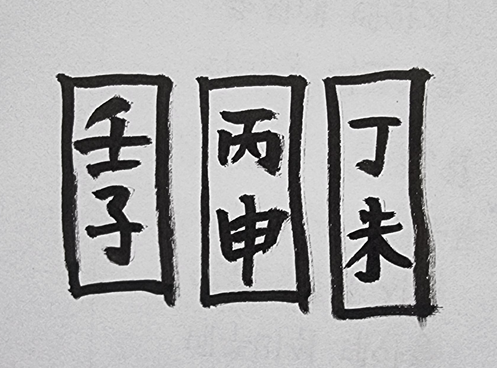 丁朱
丙申
壬子